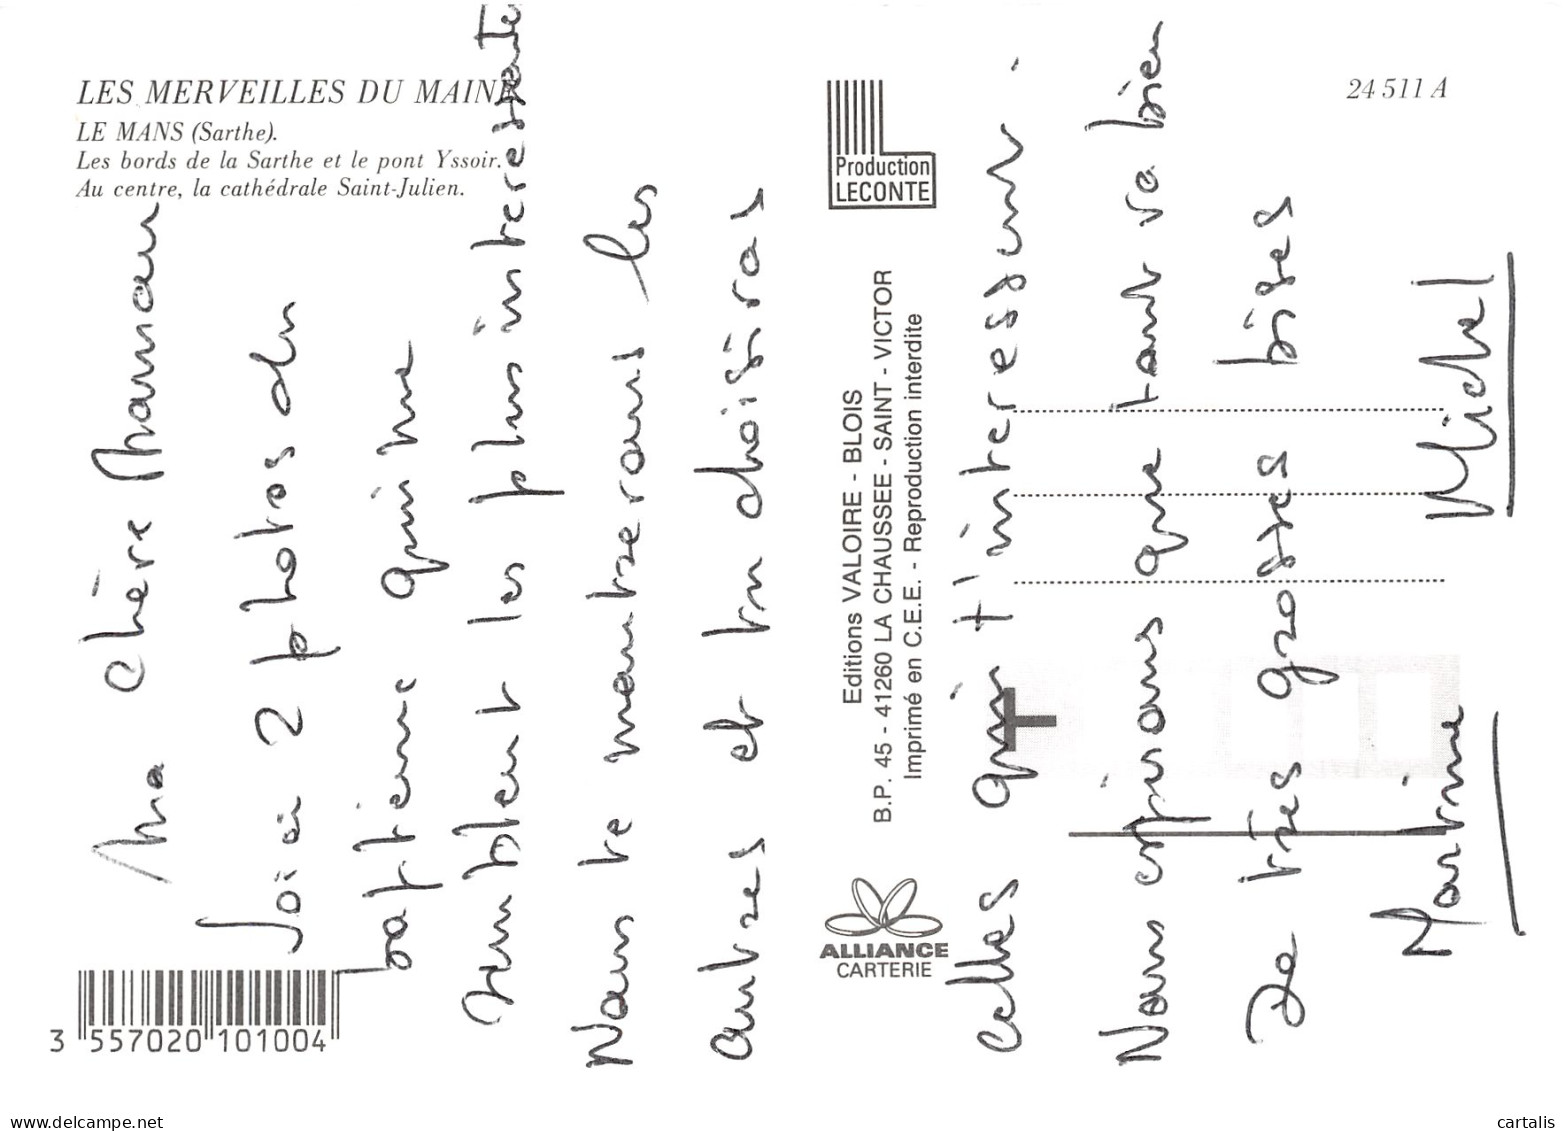 LES MERVEILLES DU MAINE
LE MANS (Sarthe).
Les bords de la Sarthe et le pont Yssoir.
Au centre, la cathédrale Saint-Julien.
24 511 A
Production
LECONTE
Editions VALOIRE - BLOIS
B.P. 45 - 41260 LA CHAUSSEE - SAINT - VICTOR
Imprimé en C.E.E. - Reproduction interdite
ALLIANCE
CARTERIE
3 557020 101004
T
Ma chère Maman
Voici 2 photos du
baptème qui me
semblent les plus interessantes
Nous te montrerons les
autres et tu choisiras
celles qui t'interessent.
Nous espérons que tout va bien
De très grosses bises
Martine Michel
www.delcampe.net
cartalis